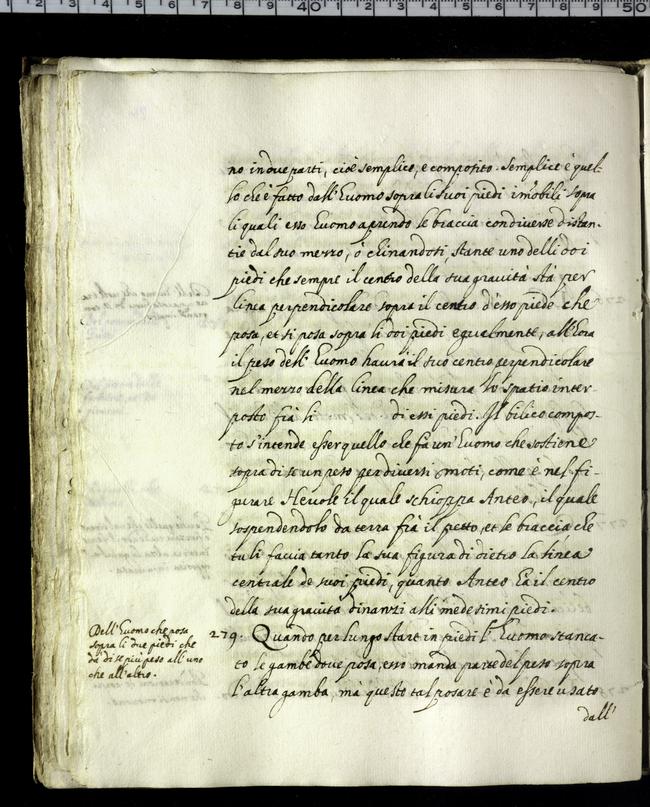 no in due parti, cioè semplice, e composito. Semplice è quel-
lo che è fatto dall' Huomo sopra li suoi piedi imobili sopra
li quali esso Huomo aprendo le braccia con diverse distan-
tie dal suo mezzo, ò chinandosi, stante uno delli doi
piedi che sempre il centro della sua gravità stà per
linea perpendicolare sopra il centro d'esso piede che
posa, et si posa sopra li doi piedi egualmente, all'hora
il peso dell' Huomo haurà il suo centro perpendicolare
nel mezzo della linea che misura lo spatio inter-
posto frà li di essi piedi. Il bilico compos-
to s'intende esser quello che fà un' Huomo che sostiene
sopra di se un peso per diversi moti, come è nel fi-
gurare Hercole il quale schioppa Anteo, il quale
sospendendolo da terra frà il petto, et le braccia che
tu li faccia tanto la sua figura di dietro la linea
centrale de suoi piedi, quanto Anteo hà il centro
della sua gravita dinanzi alli medesimi piedi.
Dell' Huomo che posa
sopra li due piedi che
dà di se più peso all' uno
che all' altro.
279 Quando per lungo Start in piedi l' Huomo stanca-
to le gambe dove posa, esso manda parte del peso sopra
l'altra gamba, mà questo tal posare è da essere usato
dall'